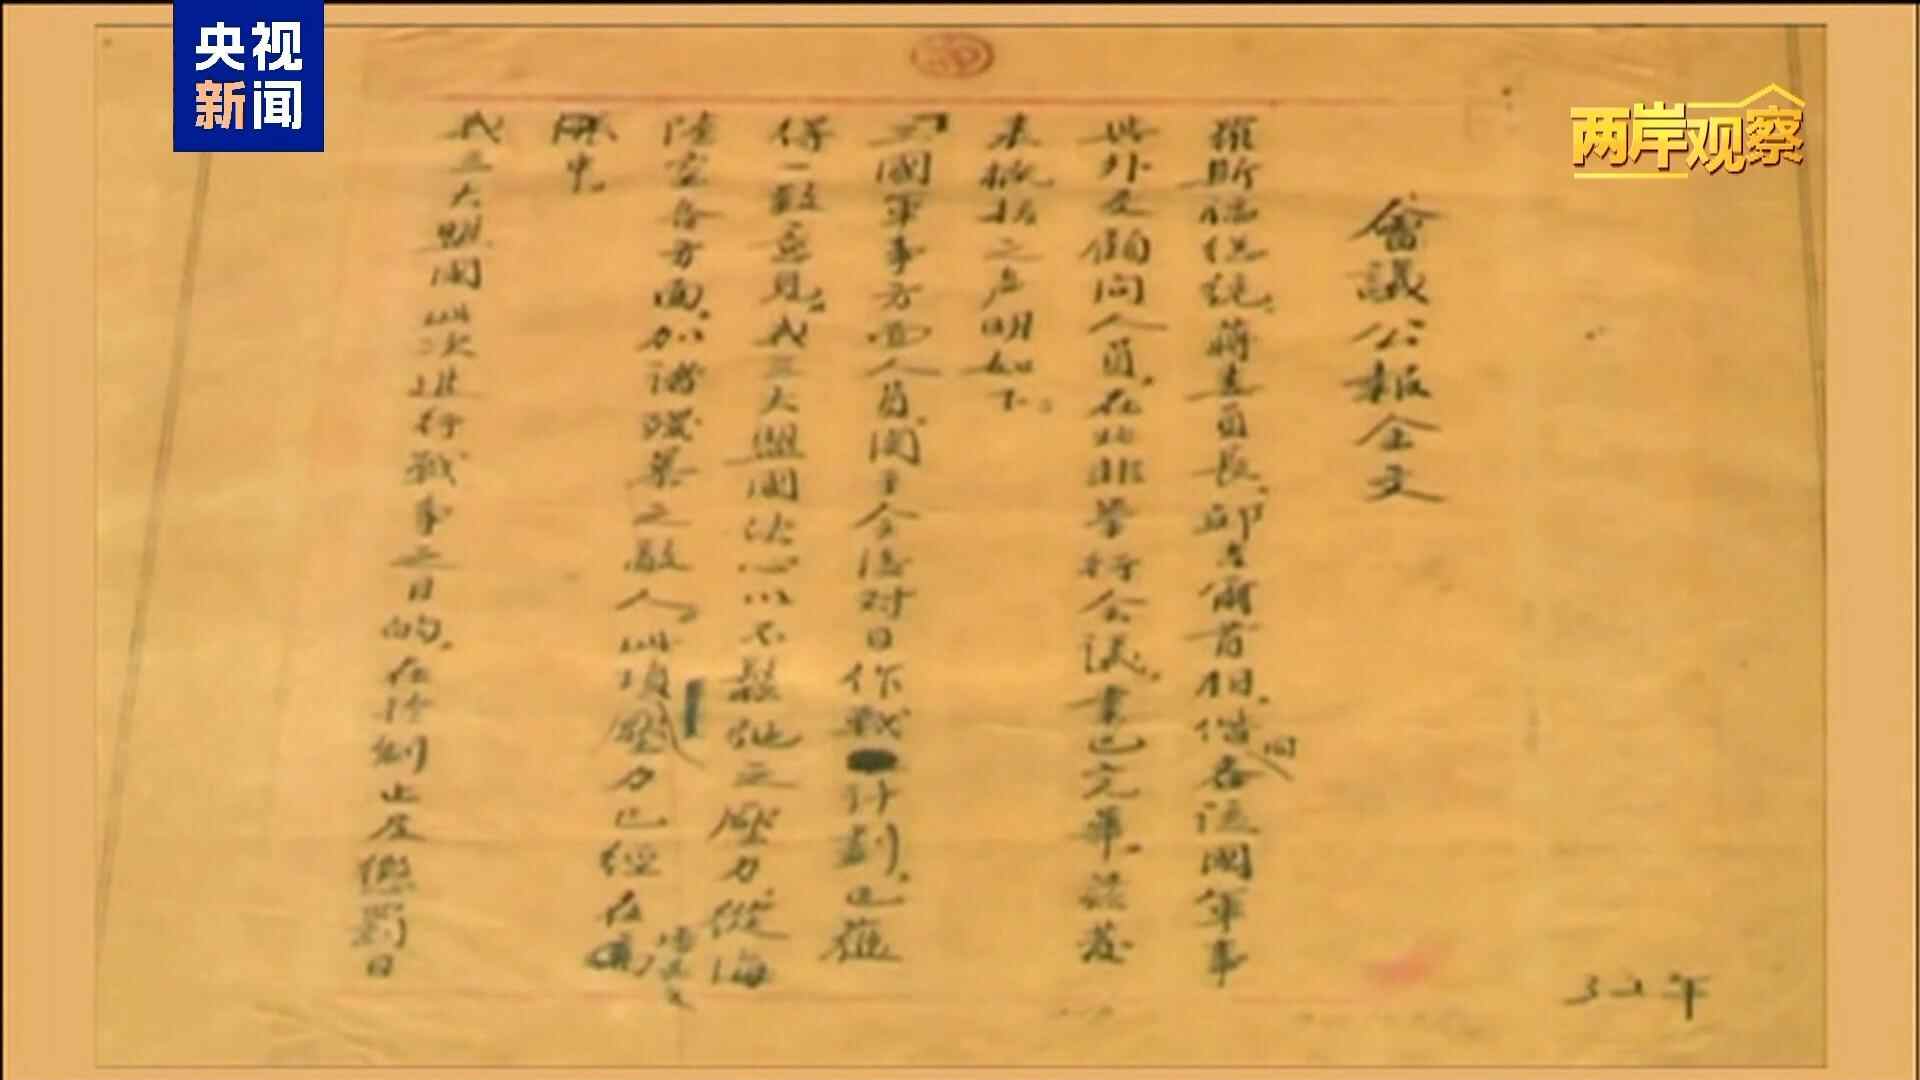 央视
新闻
两岸观察
會議公報全文
羅斯福總統、蔣委員長、邱吉爾首相、偕同各該國軍事
與外交顧問人員，在北非舉行會議，業已完畢，茲發
表概括之声明如下。
三國軍事方面人員，関于今後对日作戰計劃，已獲
得一致意見，我三大盟國決心以不鬆弛之壓力，從海
陸空各方面，加諸殘暴之敵人，此項壓力已經在
中。
我三大盟國此次進行戰爭之目的，在於制止及懲罰日
32年